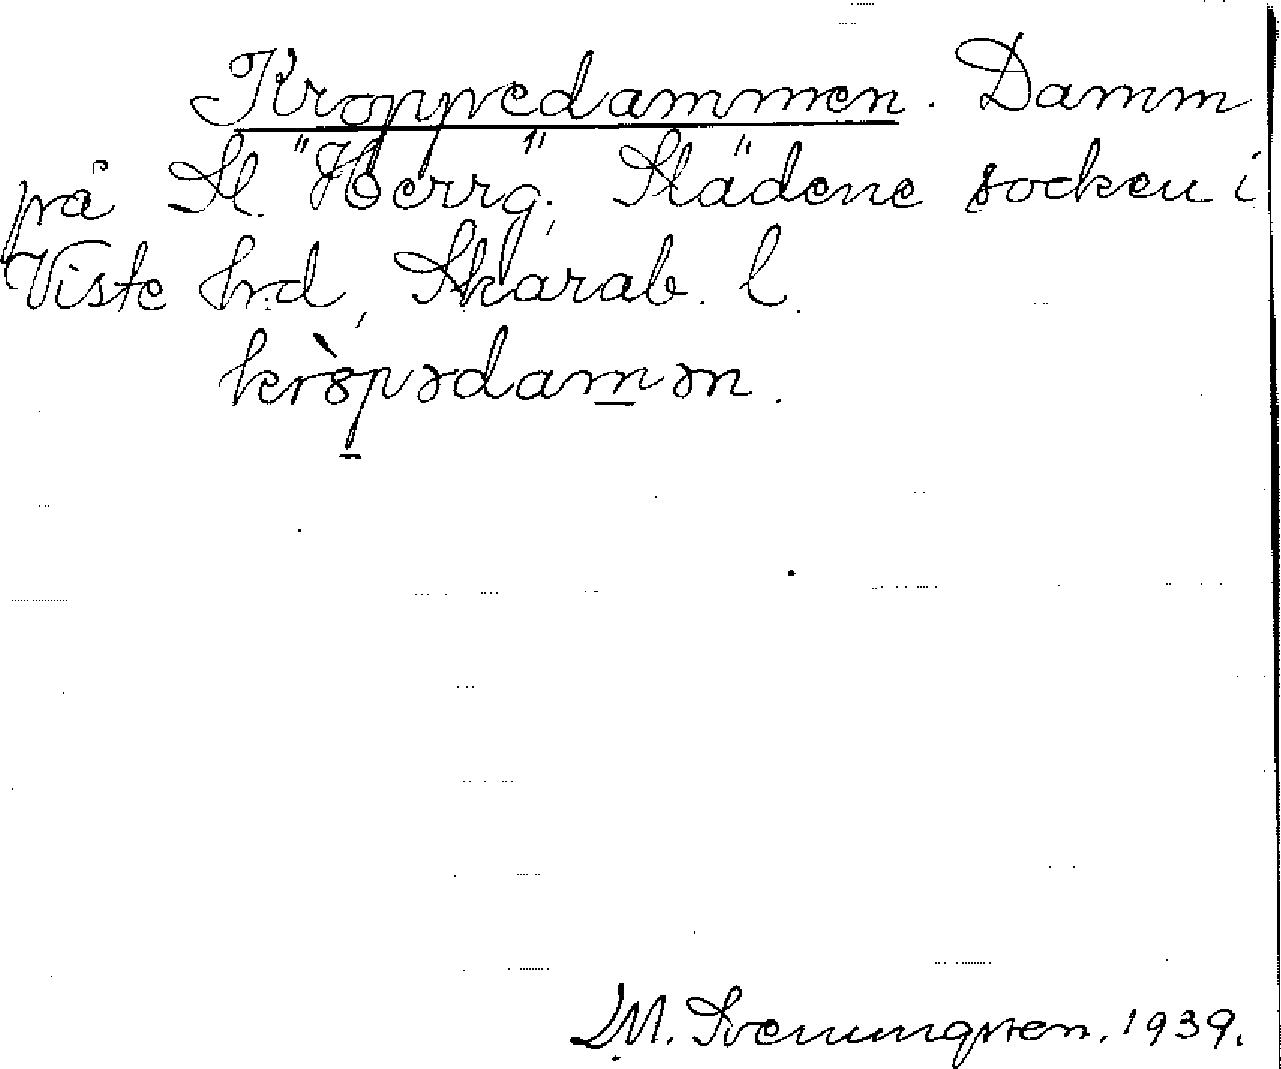 Kroppedammen. Damm
på St. "Herrg.", Slädene socken i
Viste hd, Skarab. l.
kròpədamən.
M. Svenungsson. 1939.